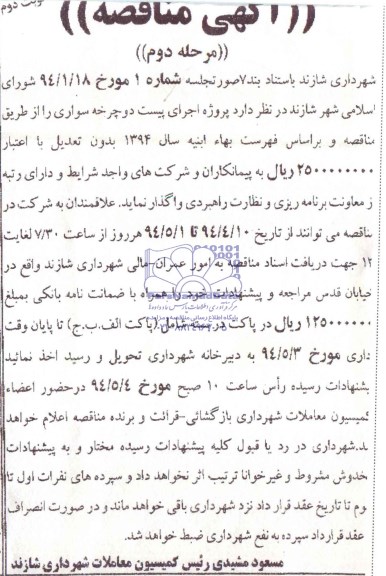 نوبت دوم
((آگهی مناقصه))
((مرحله دوم))
شهرداری شازند باستناد بند۷صورتجلسه شماره ۱ مورخ ۹۴/۱/۱۸ شورای
اسلامی شهر شازند در نظر دارد پروژه اجرای پیست دوچرخه سواری را از طریق
مناقصه و براساس فهرست بهاء ابنیه سال ۱۳۹۴ بدون تعدیل با اعتبار
۲۵۰۰۰۰۰۰۰۰ ریال به پیمانکاران و شرکت های واجد شرایط و دارای رتبه
ز معاونت برنامه ریزی و نظارت راهبردی واگذار نماید. علاقمندان به شرکت در
مناقصه می توانند از تاریخ ۹۴/۴/۱۰ تا ۹۴/۵/۱ هرروز از ساعت ۷/۳۰ لغایت
۱۲ جهت دریافت اسناد مناقصه به امور عمران-مالی شهرداری شازند واقع در
خیابان قدس مراجعه و پیشنهادات خود را همراه با ضمانت نامه بانکی بمبلغ
۱۲۵۰۰۰۰۰۰ ریال در پاکت در بسته شامل(پاکت الف.ب.ج) تا پایان وقت
داری مورخ ۹۴/۵/۳ به دبیرخانه شهرداری تحویل و رسید اخذ نمائید
یشنهادات رسیده رأس ساعت ۱۰ صبح مورخ ۹۴/۵/۴ درحضور اعضاء
کمیسیون معاملات شهرداری بازگشائی-قرائت و برنده مناقصه اعلام خواهد
ـد.شهرداری در رد یا قبول کلیه پیشنهادات رسیده مختار و به پیشنهادات
خدوش مشروط و غیرخوانا ترتیب اثر نخواهد داد و سپرده های نفرات اول تا
وم تا تاریخ عقد قرار داد نزد شهرداری باقی خواهد ماند و در صورت انصراف
عقد قرارداد سپرده به نفع شهرداری ضبط خواهد شد.
مسعود مشیدی رئیس کمیسیون معاملات شهرداری شازند